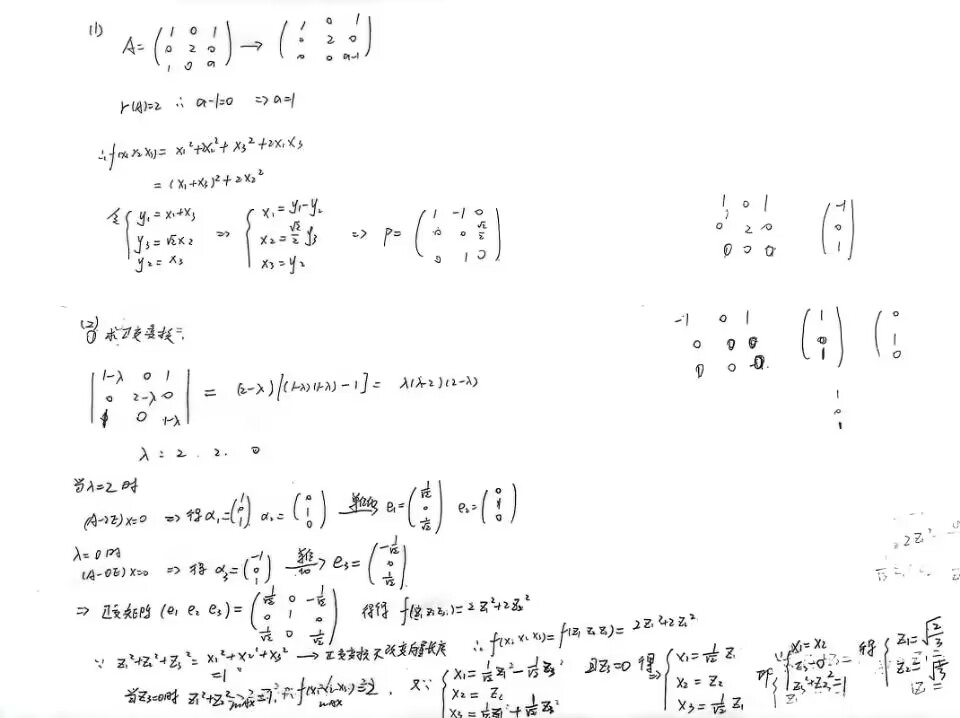 (1) A = ( 1 0 1 ; 0 2 0 ; 1 0 a ) → ( 1 0 1 ; 0 2 0 ; 0 0 a-1 )
r(A)=2 ∴ a-1=0 ⇒ a=1
∴ f(x₁ x₂ x₃) = x₁²+2x₂²+x₃²+2x₁x₃
= (x₁+x₃)²+2x₂²
令 { y₁=x₁+x₃ ; y₃=√2 x₂ ; y₂=x₃ ⇒ { x₁=y₁-y₂ ; x₂=√2/2 y₃ ; x₃=y₂ ⇒ P= ( 1 -1 0 ; 0 0 √2/2 ; 0 1 0 )
1 0 1 ; 0 2 0 ; 0 0 0 ( -1 ; 0 ; 1 )
(2) ① 求正交变换:
-1 0 1 ; 0 0 0 ; 0 0 0 ( 1 ; 0 ; 1 ) ( 0 ; 1 ; 0 )
1 ; 0 ; 1
| 1-λ 0 1 ; 0 2-λ 0 ; 1 0 1-λ | = (2-λ)[(1-λ)(1-λ)-1] = λ(λ-2)(2-λ)
λ = 2 . 2 . 0
当λ=2时
(A-2E)x=0 ⇒ 得 α₁=( 1 ; 0 ; 1 ) α₂=( 0 ; 1 ; 0 ) 单位化 e₁=( 1/√2 ; 0 ; 1/√2 ) e₂=( 0 ; 1 ; 0 )
λ=0时
(A-0E)x=0 ⇒ 得 α₃=( -1 ; 0 ; 1 ) 单位化 → e₃=( -1/√2 ; 0 ; 1/√2 )
⇒ 正交矩阵 (e₁ e₂ e₃) = ( 1/√2 0 -1/√2 ; 0 1 0 ; 1/√2 0 1/√2 ) 得 f(z₁ z₂ z₃)=2z₁²+2z₂²
∵ z₁²+z₂²+z₃² = x₁²+x₂²+x₃² =1 → 正交变换不改变向量长度 ∴ f(x₁ x₂ x₃)=f(z₁ z₂ z₃)= 2z₁²+2z₂²
当z₃=0时 z₁²+z₂² max ∴ f(x₁ x₂ x₃) max = 2 . 又∵ { x₁=1/√2 z₁-1/√2 z₃ ; x₂=z₂ ; x₃=1/√2 z₁+1/√2 z₃ 且z₃=0 得 { x₁=1/√2 z₁ ; x₂=z₂ ; x₃=1/√2 z₁ 即 { x₁=x₂ ; z₃=0 得